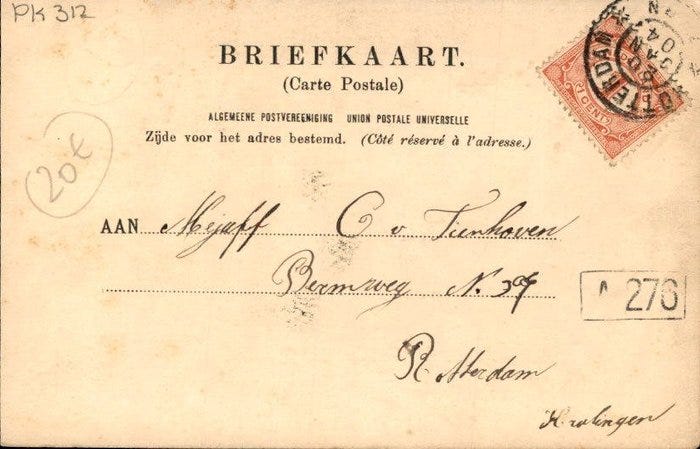 PK 312
BRIEFKAART.
(Carte Postale)
ALGEMEENE POSTVEREENIGING UNION POSTALE UNIVERSELLE
Zijde voor het adres bestemd. (Côté réservé à l'adresse.)
20€
AAN Mejuff C v Tienhoven
N. 39
A 276
Rotterdam
Kralingen
ROTTERDAM
JAN
04
1 CENT